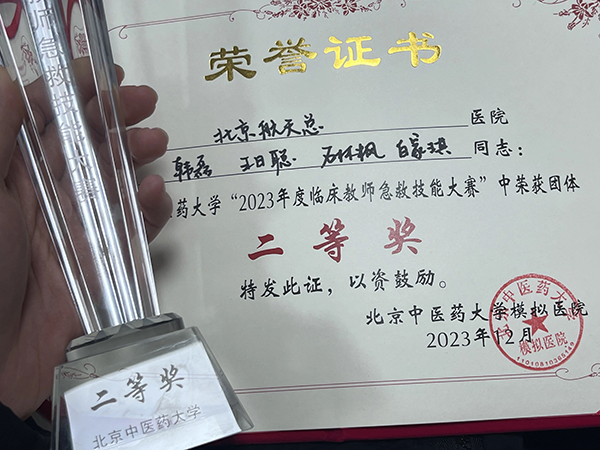 荣誉证书
北京航天总医院
韩磊 王日聪 石怀枫 白家琪同志：
药大学“2023年度临床教师急救技能大赛”中荣获团体
二等奖
特发此证，以资鼓励。
北京中医药大学模拟医院
2023年12月
模拟医院
师急救技能大赛
二等奖
北京中医药大学